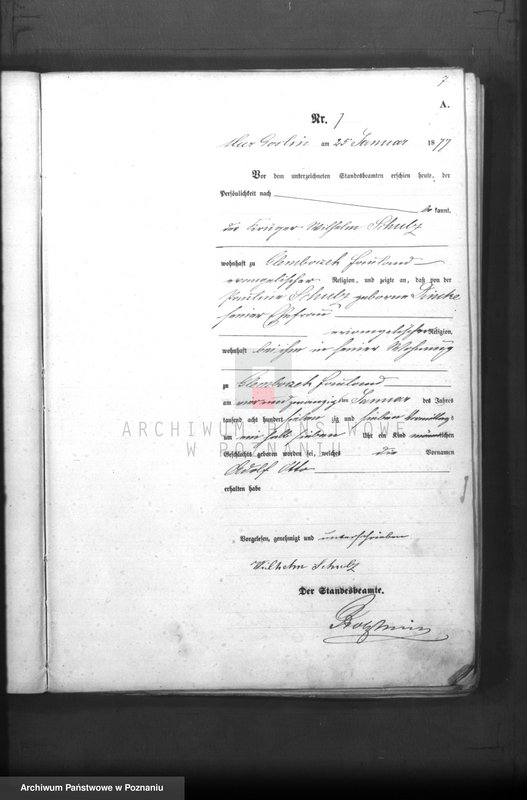 9
A.
Nr. 7
Mur Goslin am 25 Januar 1877
Vor dem unterzeichneten Standesbeamten erschien heute, der
Persönlichkeit nach
kannt,
der Krüger Wilhelm Schulz
wohnhaft zu Glembozek Hauland
evangelischer Religion, und zeigte an, daß von der
Pauline Schulz geborene
seiner Ehefrau
evangelischer Religion,
wohnhaft bei ihm in seiner Wohnung
zu Glembozek Hauland
am vier und zwanzigsten Januar des Jahres
tausend acht hundert sieben zig und sieben Vormittags
um ein halb sieben Uhr ein Kind männlichen
Geschlechts geboren worden sei, welches die Vornamen
Adolf Otto
erhalten habe
Vorgelesen, genehmigt und unterschrieben
Wilhelm Schulz
Der Standesbeamte.
ARCHIWUM PAŃSTWOWE
W POZNANIU
Archiwum Państwowe w Poznaniu